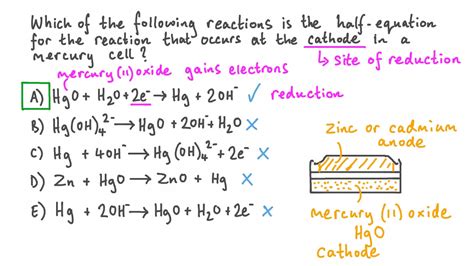 Which of the following reactions is the half-equation
for the reaction that occurs at the cathode in a
mercury cell?
↳ site of reduction
mercury (II) oxide gains electrons
A) HgO + H₂O + 2e⁻ → Hg + 2OH⁻ ✓ reduction
B) Hg(OH)₄²⁻ → HgO + 2OH⁻ + H₂O ✗
C) Hg + 4OH⁻ → Hg(OH)₄²⁻ + 2e⁻ ✗
D) Zn + HgO → ZnO + Hg ✗
E) Hg + 2OH⁻ → HgO + H₂O + 2e⁻ ✗
zinc or cadmium
anode
mercury (II) oxide
HgO
cathode